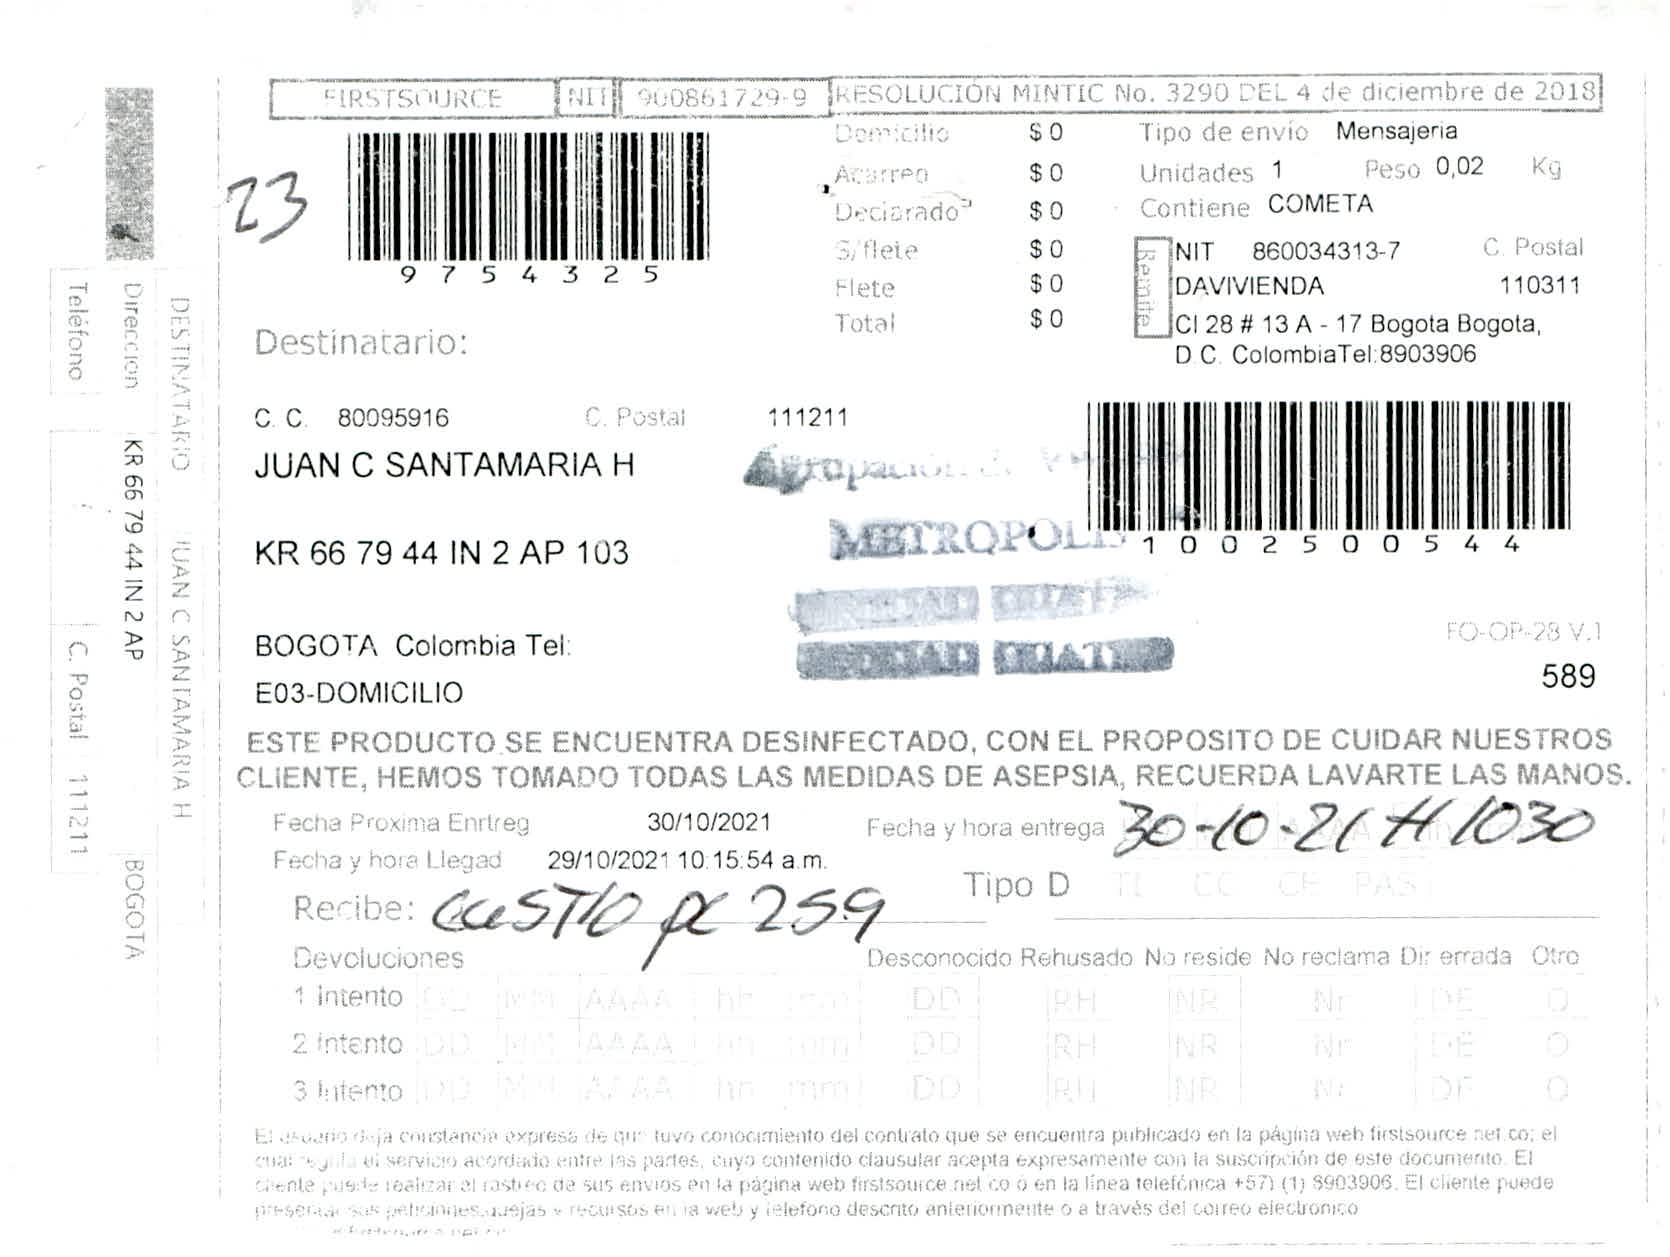 FIRSTSOURCE NIT 900861729-9 RESOLUCIÓN MINTIC No. 3290 DEL 4 de diciembre de 2018
23
9754325
Domicilio $ 0
Acarreo $ 0
Declarado $ 0
S/flete $ 0
Flete $ 0
Total $ 0
Tipo de envío Mensajeria
Unidades 1 Peso 0,02 Kg
Contiene COMETA
Remite
NIT 860034313-7 C. Postal
DAVIVIENDA 110311
Cl 28 # 13 A - 17 Bogota Bogota,
D C. ColombiaTel:8903906
Destinatario:
C. C. 80095916 C. Postal 111211
JUAN C SANTAMARIA H
KR 66 79 44 IN 2 AP 103
BOGOTA Colombia Tel:
E03-DOMICILIO
Agrupación de
METROPOLIS
1002500544
FO-OP-28 V.1
589
ESTE PRODUCTO SE ENCUENTRA DESINFECTADO, CON EL PROPOSITO DE CUIDAR NUESTROS
CLIENTE, HEMOS TOMADO TODAS LAS MEDIDAS DE ASEPSIA, RECUERDA LAVARTE LAS MANOS.
Fecha Proxima Enrtreg 30/10/2021 Fecha y hora entrega 30-10-21 H 1030
Fecha y hora Llegad 29/10/2021 10:15:54 a.m.
Tipo D TI CC CE PAS
Recibe: 259
Devoluciones Desconocido Rehusado No reside No reclama Dir errada Otro
1 Intento DD MM AAAA hh mm DD RH NR Nr DE O
2 Intento DD MM AAAA hh mm DD RH NR Nr DE O
3 Intento DD MM AAAA hh mm DD RH NR Nr DE O
El usuario deja constancia expresa de que tuvo conocimiento del contrato que se encuentra publicado en la página web firstsource.net.co; el
cual regula el servicio acordado entre las partes, cuyo contenido clausular acepta expresamente con la suscripción de este documento. El
cliente puede realizar el rastreo de sus envios en la página web firstsource.net.co o en la línea telefónica +57) (1) 8903906. El cliente puede
presentar sus peticiones, quejas y recursos en la web y telefono descrito anteriormente o a través del correo electronico
DESTINATARIO JUAN C SANTAMARIA H
Direccion KR 66 79 44 IN 2 AP BOGOTA
Teléfono C. Postal 111211